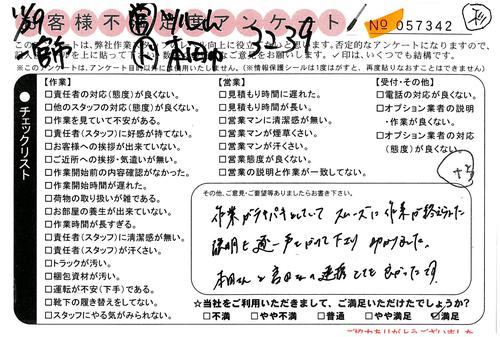 お客様不満足度アンケート
No 057342
11/29
3239
このアンケートは、弊社作業
否定的なアンケートになりますので、
お願いします。✓印は、いくつでも結構です。
※このアンケートは、アンケート目的以外に使用いたしません。(※情報保護シールは1度はがすと、再度貼りなおすことはできません)
●チェックリスト
【作業】
□責任者の対応(態度)が良くない。
□他のスタッフの対応(態度)が良くない。
□作業を見ていて不安がある。
□責任者(スタッフ)に好感が持てない。
□お客様への挨拶が出来ていない。
□ご近所への挨拶・気遣いが無い。
□作業開始前の内容確認がなかった。
□作業開始時間が遅れた。
□荷物の取り扱いが雑である。
□お部屋の養生が出来ていない。
□作業時間が長すぎる。
□責任者(スタッフ)に清潔感が無い。
□責任者(スタッフ)が汗くさい。
□トラックが汚い。
□梱包資材が汚い。
□運転が安(下手)である。
□靴下の履き替えをしてない。
□スタッフにやる気がみられない。
【営業】
□見積もり時間に遅れた。
□見積もり時間が長い。
□営業マンに清潔感が無い。
□営業マンが煙草くさい。
□営業マンが汗くさい。
□営業態度が良くない。
□営業の説明と作業が一致してない。
【受付・その他】
□電話の対応が良くない。
□オプション業者の説明・作業が良くない。
□オプション業者の対応(態度)が良くない。
その他、ご意見・ご要望等ありましたらお書き下さい。
作業がテキパキとしていて スムーズに作業が終えられた
説明も逐一声をかけて下さり 助かりました。
☆当社をご利用いただきまして、ご満足いただけたでしょうか?
□不満 □やや不満 □普通 □やや満足 ☑満足
ご協力ありがとうございました